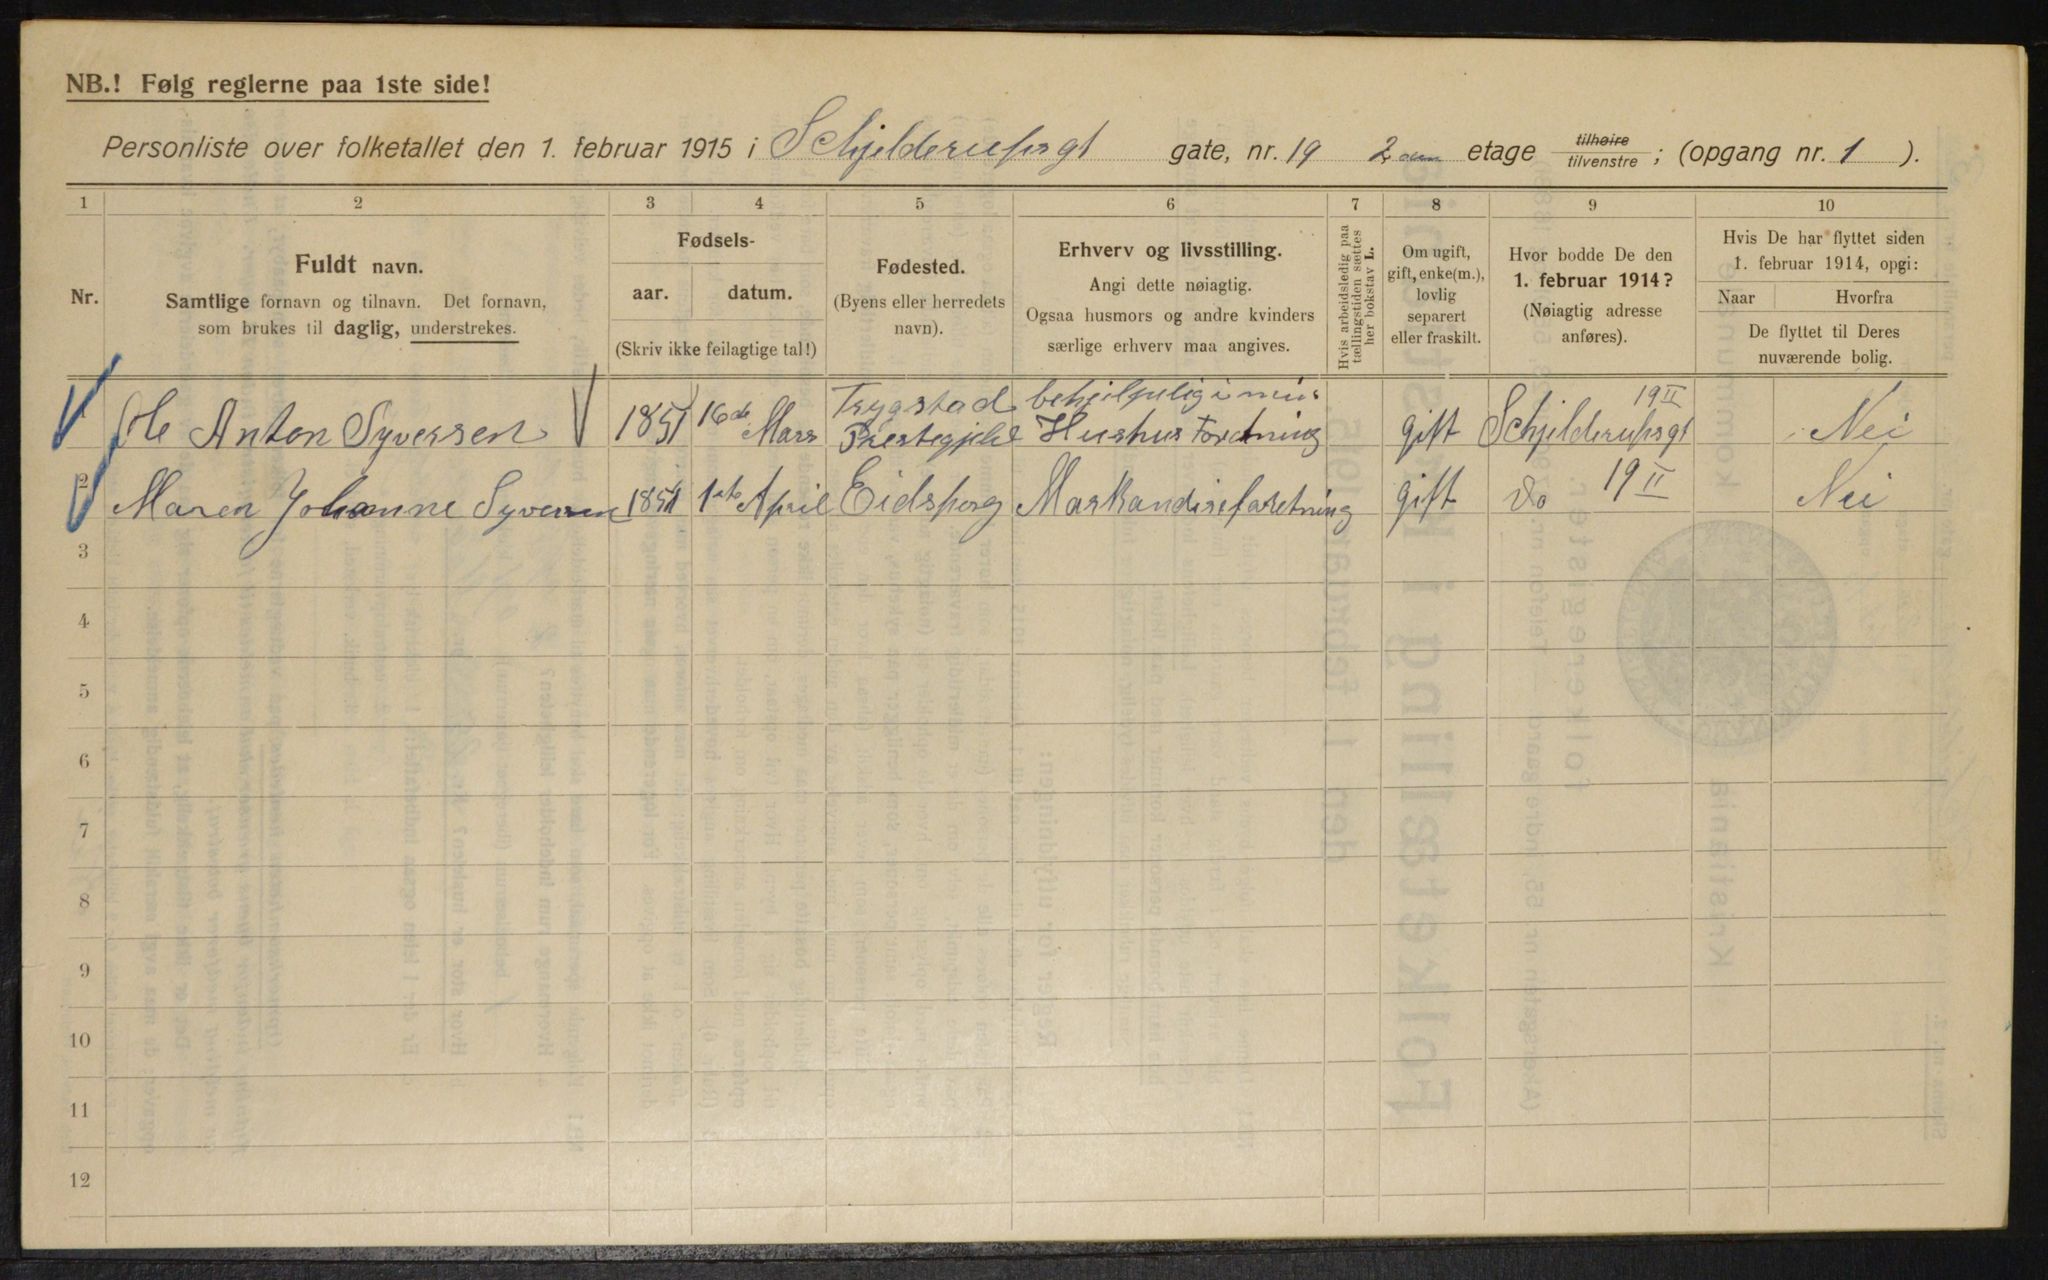 NB.! Følg reglerne paa 1ste side!
Personliste over folketallet den 1. februar 1915 i Schjelderupsgt gate, nr. 19 2den etage tilhøire tilvenstre ; (opgang nr. 1 ).
1 2 3 4 5 6 7 8 9 10
Nr.
Fuldt navn.
Samtlige fornavn og tilnavn. Det fornavn,
som brukes til daglig, understrekes.
Fødsels-
aar. datum.
(Skriv ikke feilagtige tal!)
Fødested.
(Byens eller herredets
navn).
Erhverv og livsstilling.
Angi dette nøiagtig.
Ogsaa husmors og andre kvinders
særlige erhverv maa angives.
Hvis arbeidsledig paa
tællingstiden sættes
her bokstav L.
Om ugift,
gift, enke(m.),
lovlig
separert
eller fraskilt.
Hvor bodde De den
1. februar 1914?
(Nøiagtig adresse
anføres).
Hvis De har flyttet siden
1. februar 1914, opgi:
Naar Hvorfra
De flyttet til Deres
nuværende bolig.
1 Ole Anton Syversen 1851 16de Mars Trygstad Prestegjeld behjelpelig i min Hustrus Foretning gift Schjelderupsgt 19 II Nei
2 Maren Johanne Syversen 1851 1ste April Eidsberg Markandiseforetning gift do 19 II Nei
3
4
5
6
7
8
9
10
11
12